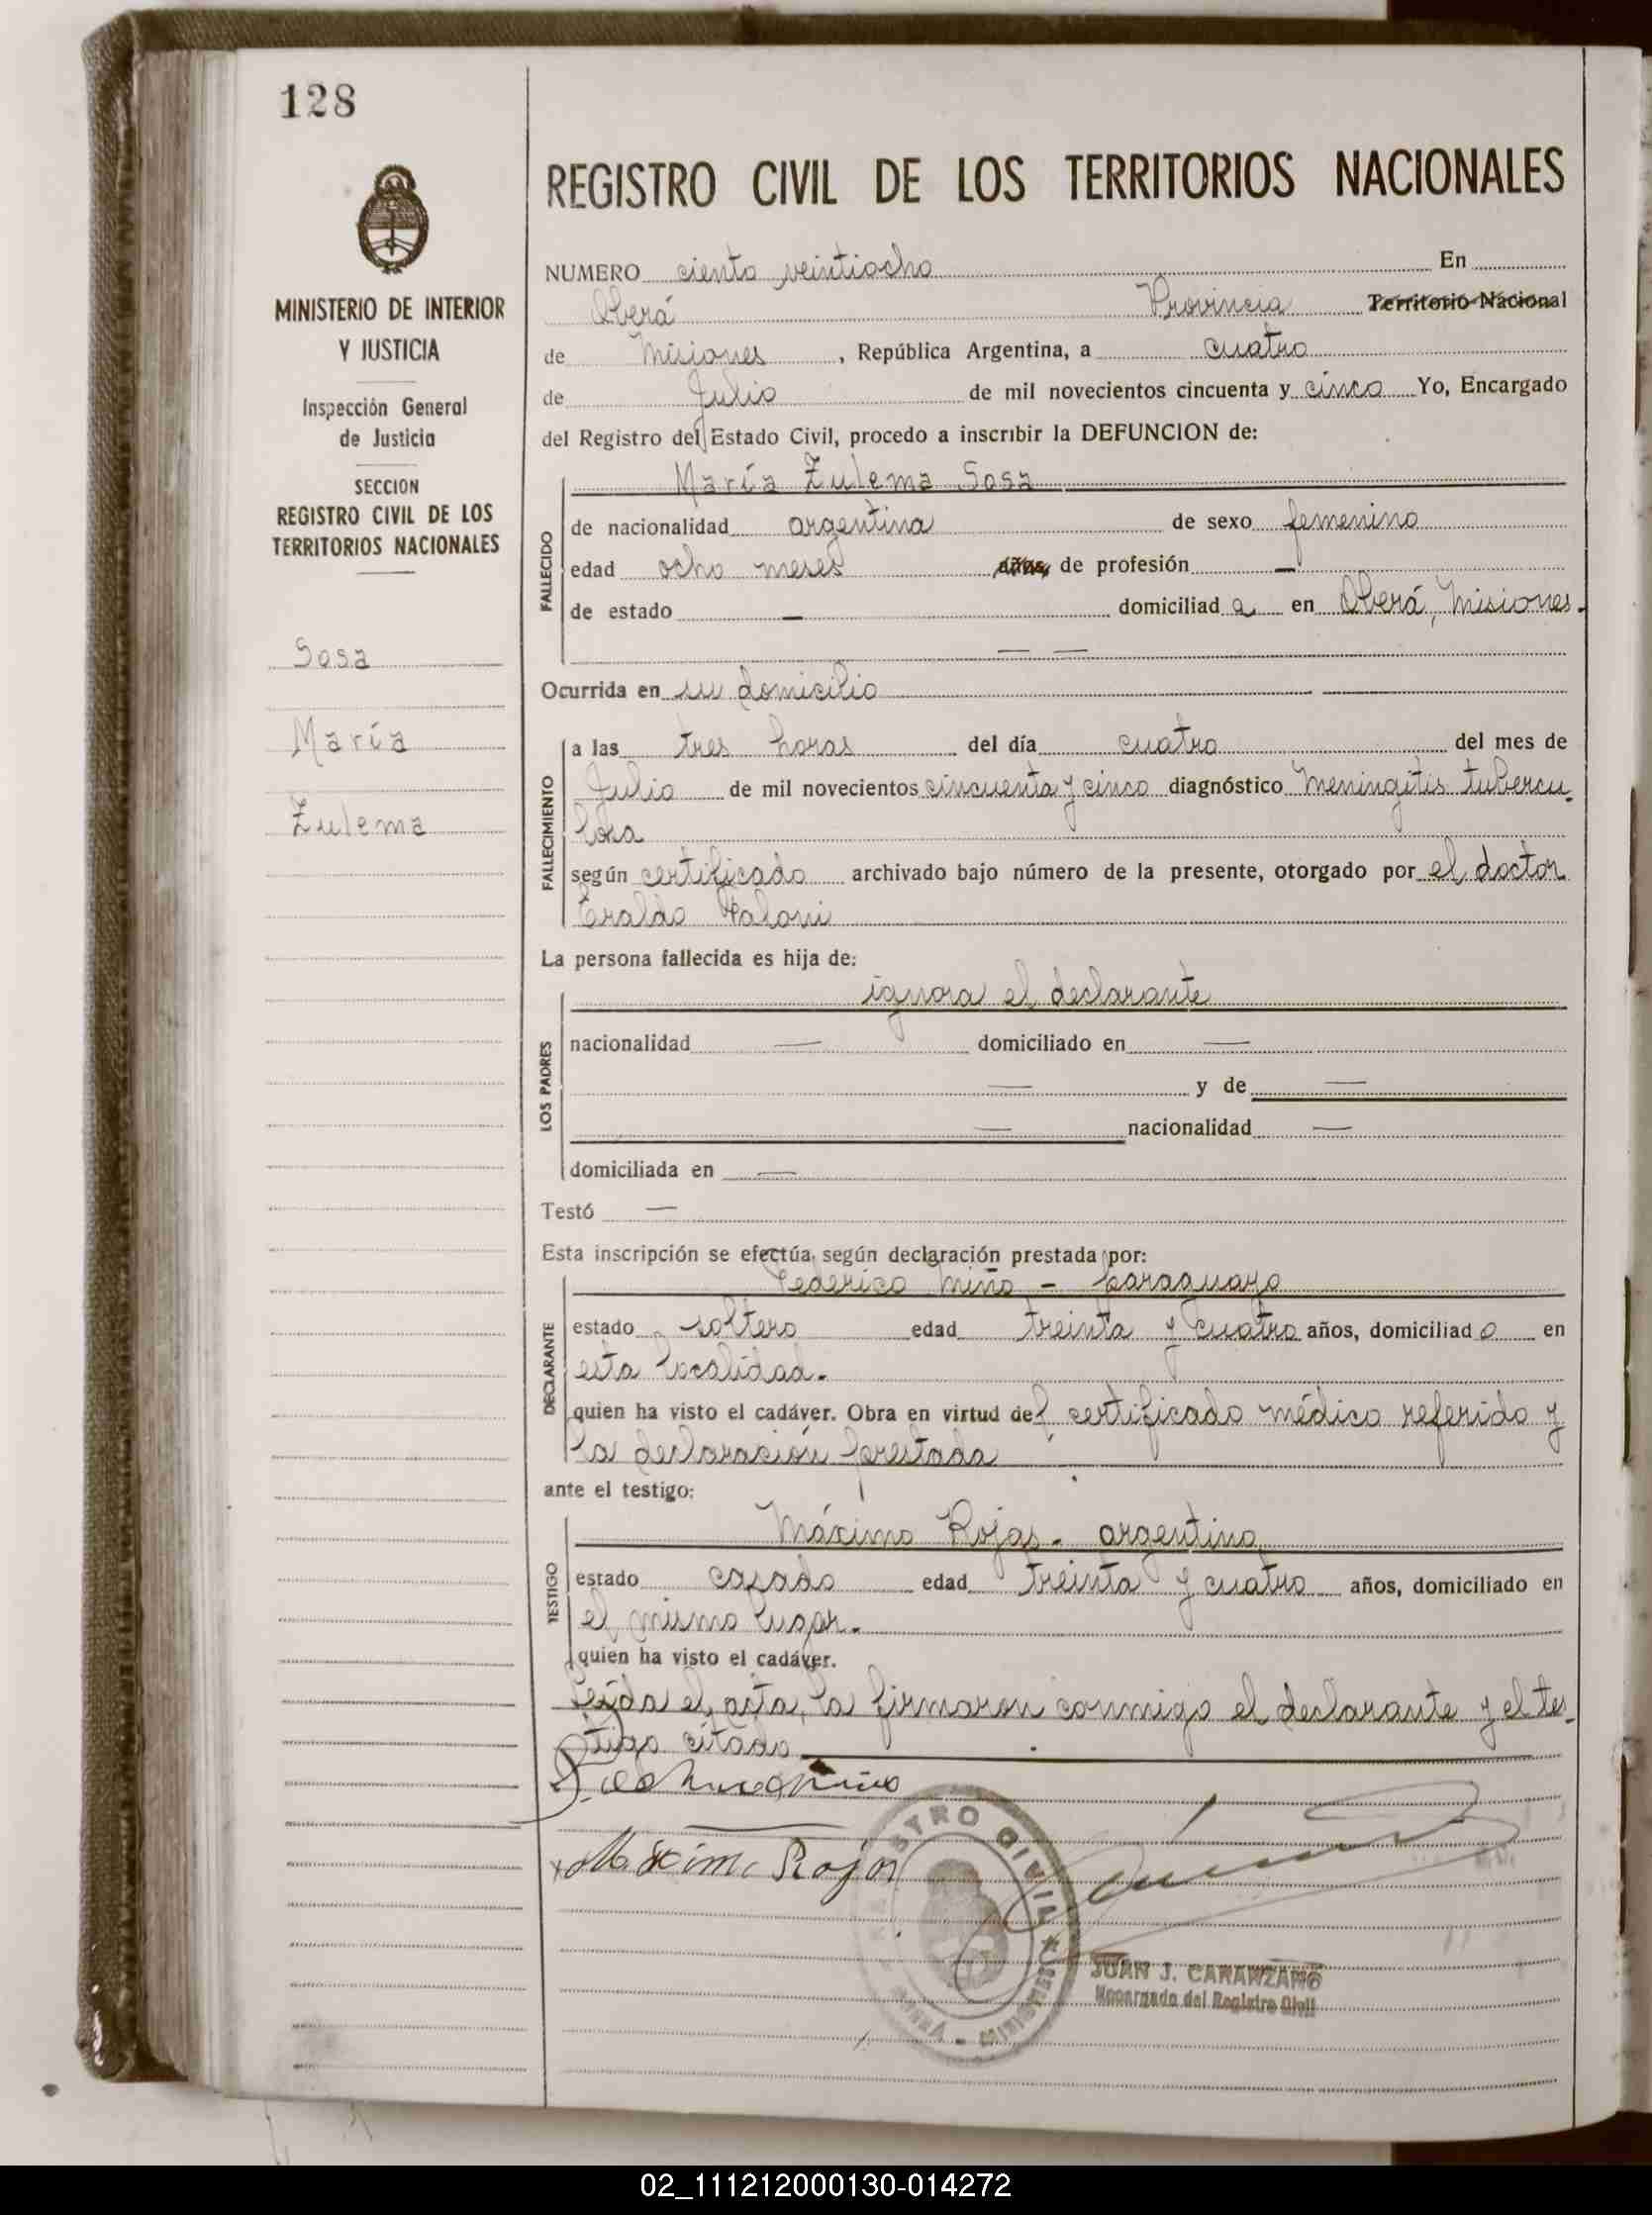 128
MINISTERIO DE INTERIOR
Y JUSTICIA
Inspección General
de Justicia
SECCION
REGISTRO CIVIL DE LOS
TERRITORIOS NACIONALES
Sosa
María
Zulema
REGISTRO CIVIL DE LOS TERRITORIOS NACIONALES
NUMERO ciento veintiocho En
Oberá Provincia Territorio Nacional
de Misiones, República Argentina, a cuatro
de Julio de mil novecientos cincuenta y cinco Yo, Encargado
del Registro del Estado Civil, procedo a inscribir la DEFUNCION de:
María Zulema Sosa
FALLECIDO
de nacionalidad argentina de sexo femenino
edad ocho meses años, de profesión —
de estado — domiciliad a en Oberá, Misiones.
— —
Ocurrida en su domicilio
FALLECIMIENTO
a las tres horas del día cuatro del mes de
Julio de mil novecientos cincuenta y cinco diagnóstico Meningitis tubercu-
losa
según certificado archivado bajo número de la presente, otorgado por el doctor
Eraldo
La persona fallecida es hija de:
ignora el declarante
LOS PADRES
nacionalidad — domiciliado en —
— y de —
— nacionalidad —
domiciliada en —
Testó —
Esta inscripción se efectúa según declaración prestada por:
Federico Miño - paraguayo
DECLARANTE
estado soltero edad treinta y cuatro años, domiciliad o en
esta localidad.
quien ha visto el cadáver. Obra en virtud del certificado médico referido y
la declaración prestada
ante el testigo:
Máximo Rojas - argentino
TESTIGO
estado casado edad treinta y cuatro años, domiciliado en
el mismo lugar.
quien ha visto el cadáver.
Leída el acta, la firmaron conmigo el declarante y el tes-
tigo citado
Máximo Rojas
REGISTRO CIVIL
OBERA - MISIONES
JUAN J. CARANZANO
Encargado del Registro Civil
02_111212000130-014272